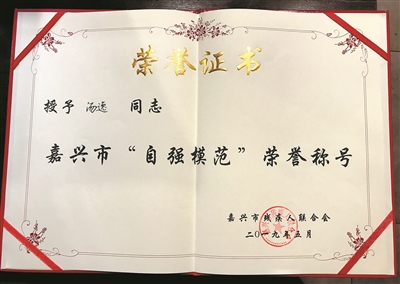 荣誉证书
授予 汤逸 同志
嘉兴市“自强模范”荣誉称号
嘉兴市残疾人联合会
二〇一九年五月